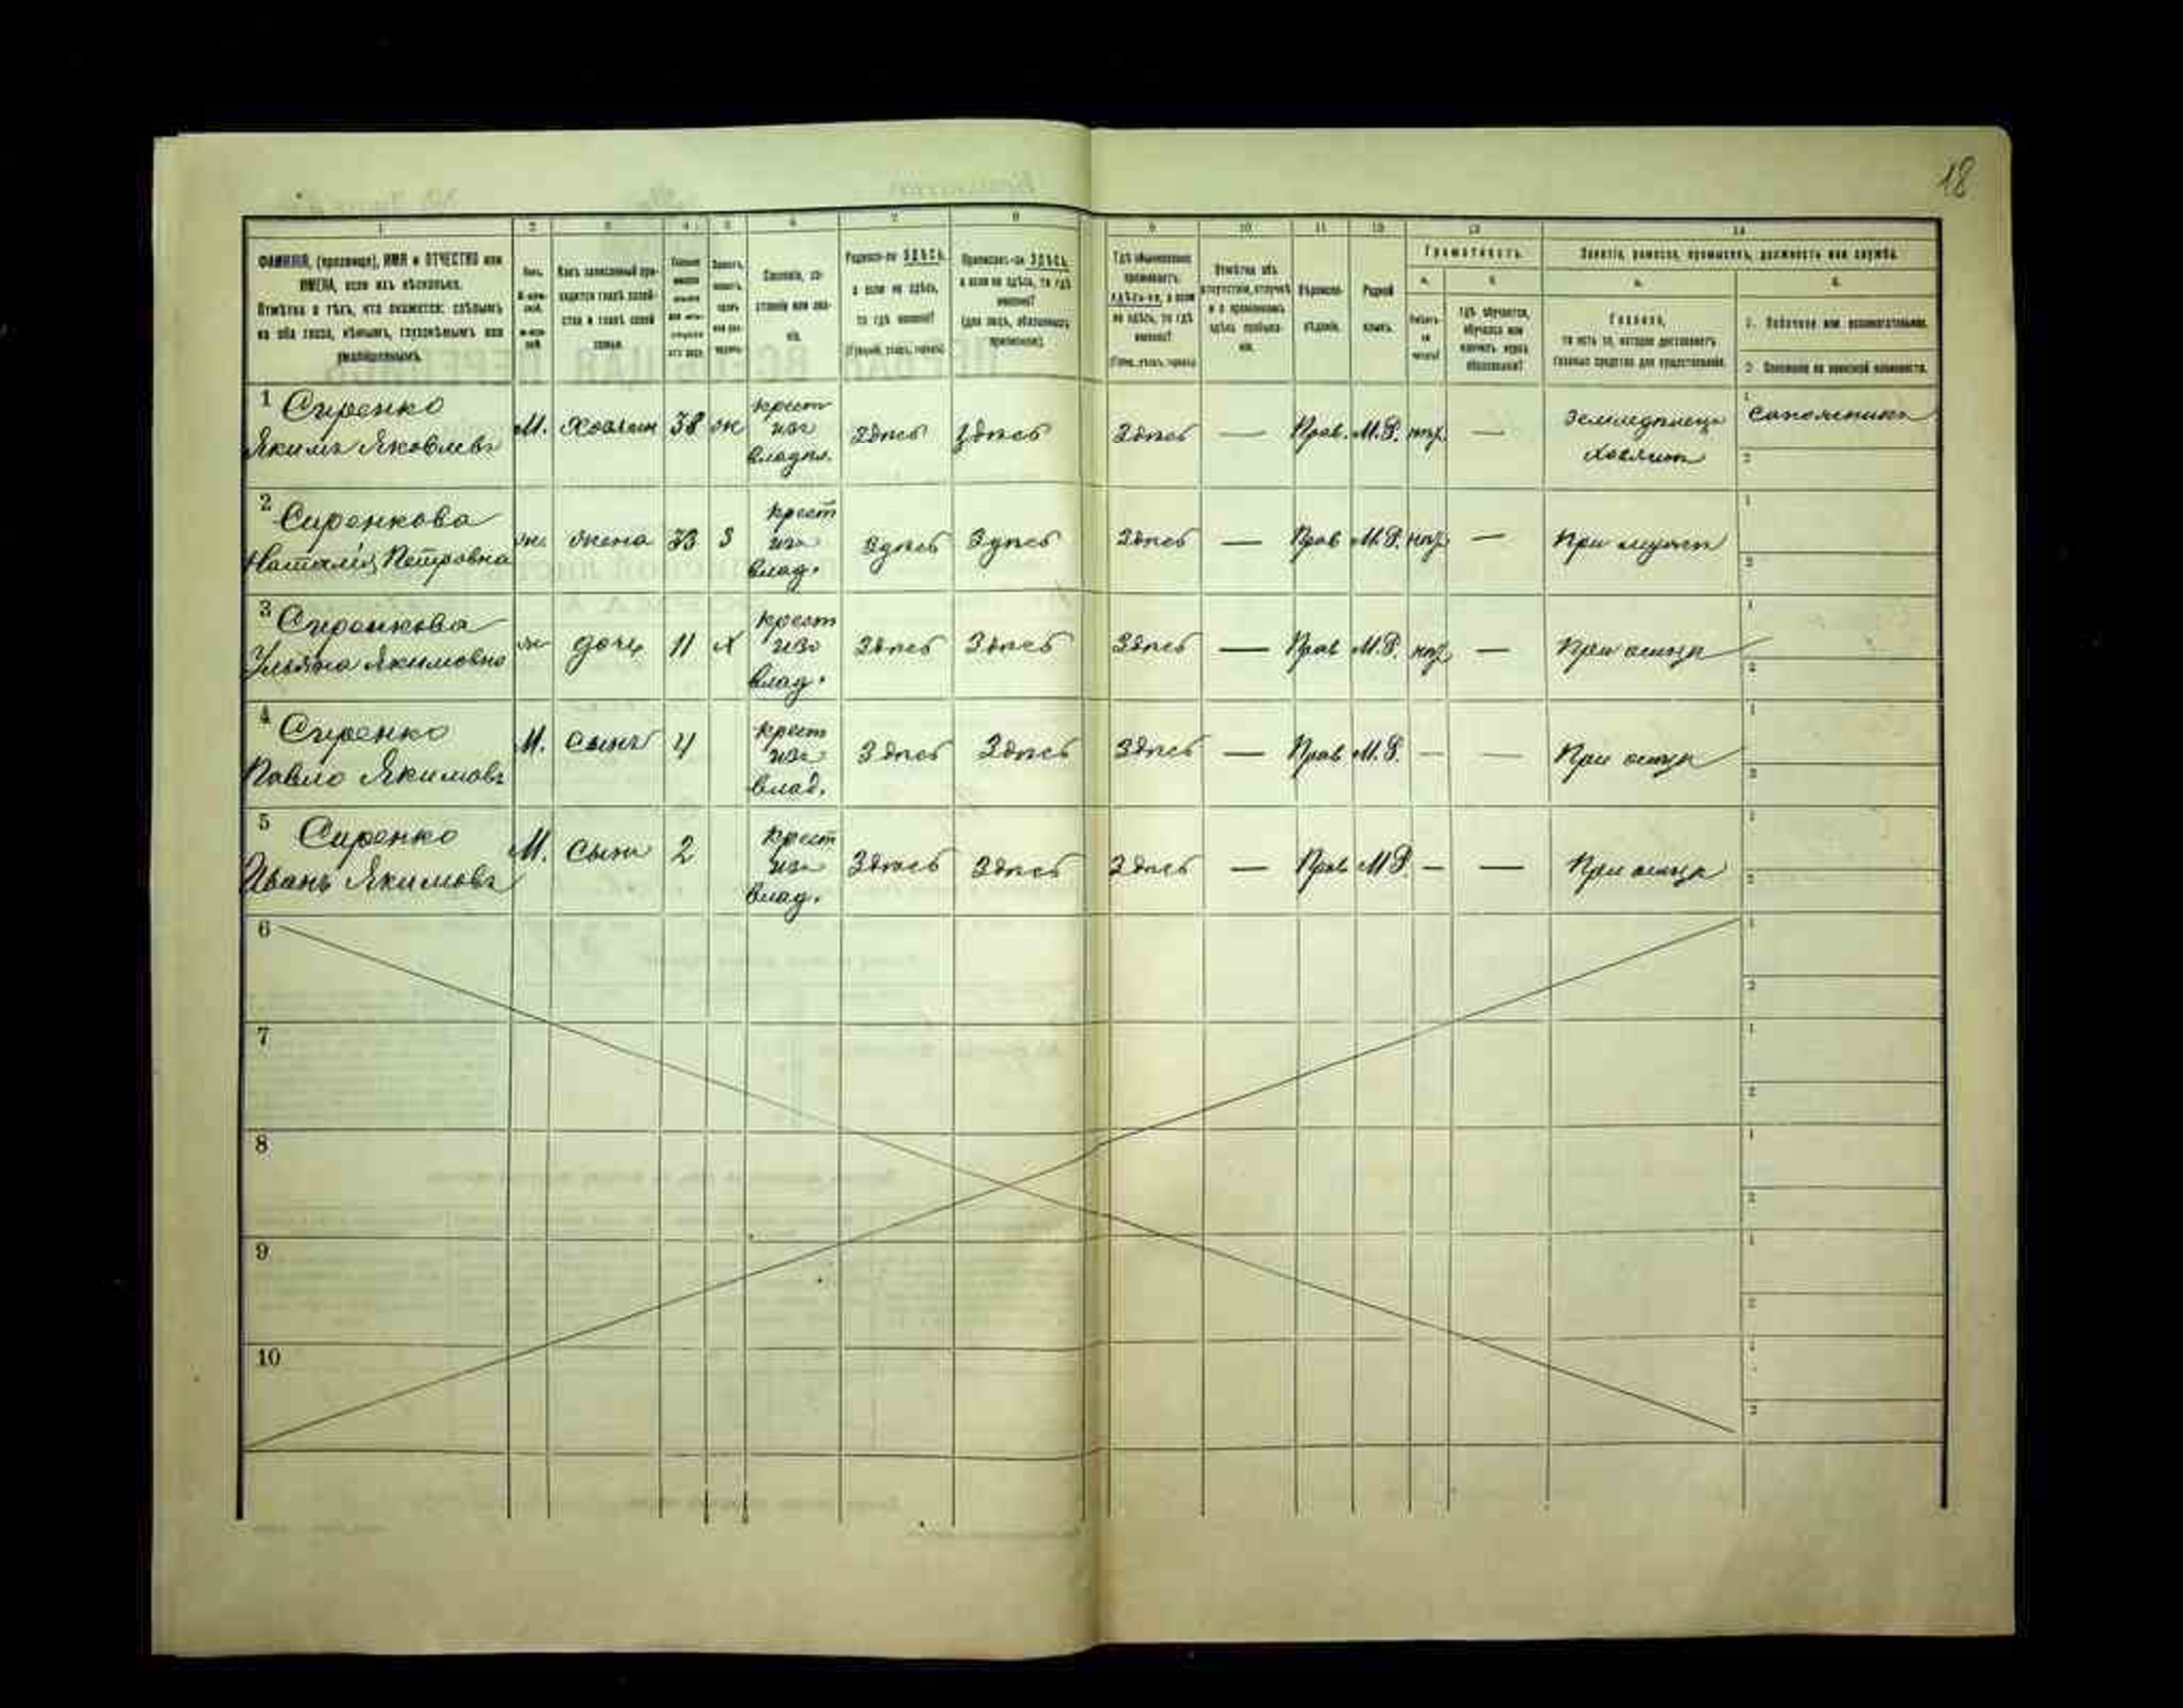 18
1 2 3 4 5 6 7 8 9 10 11 12 13 14
ФАМИЛІЯ, (прозвище), ИМЯ и ОТЧЕСТВО или
ИМЕНА, если ихъ нѣсколько.
Отмѣтка о тѣхъ, кто окажется: слѣпымъ
на оба глаза, нѣмымъ, глухонѣмымъ или
умалишеннымъ.
Полъ.
Какъ записанный при-
ходится главѣ хозяй-
ства и главѣ своей
семьи.
Сословіе, со-
стояніе или зва-
ніе.
Родился-ли ЗДѢСЬ,
а если не здѣсь,
то гдѣ именно?
(Губернія, уѣздъ, городъ)
Приписанъ-ли ЗДѢСЬ,
а если не здѣсь, то гдѣ
именно?
(для лицъ, обязанныхъ
припискою).
Гдѣ обыкновенно
проживаетъ:
здѣсь-ли, а если
не здѣсь, то гдѣ
именно?
(Губер., уѣздъ, городъ)
Отмѣтка объ
отсутствіи, отлучкѣ
и о временномъ
здѣсь пребыва-
ніи.
Вѣроиспо-
вѣданіе.
Родной
языкъ.
Грамотность.
а. б.
Умѣетъ-
ли
читать?
Гдѣ обучается,
обучался или
кончилъ курсъ
образованія?
Занятіе, ремесло, промыселъ, должность или служба.
а. б.
Главное,
то есть то, которое доставляетъ
главныя средства для существованія.
1. Побочное или вспомогательное.
2. Положеніе по воинской повинности.
1 Сиренко
Якимъ Яковлевъ
М. хозяин 38 ж крест из владѣл. здѣсь здѣсь здѣсь — Прав. М.Р. нѣт — Земледѣлец хозяин 1 сапожникъ 2
2 Сиренкова
Наталія Петровна
ж. жена 33 З крест из влад. здѣсь здѣсь здѣсь — Прав М.Р. нѣт — При мужѣ 1 2
3 Сиренкова
Ульяна Якимовна
ж дочь 11 х крест изъ влад. здѣсь здѣсь здѣсь — Прав М.Р. нѣт — При отцѣ 1 2
4 Сиренко
Павло Якимовъ
М. сынъ 4 крест изъ влад. здѣсь здѣсь здѣсь — Прав М.Р. — — При отцѣ 1 2
5 Сиренко
Иванъ Якимовъ
М. сынъ 2 крест из влад. здѣсь здѣсь здѣсь — Прав МР — — При отцѣ 1 2
6 1 2
7 1 2
8 1 2
9 1 2
10 1 2